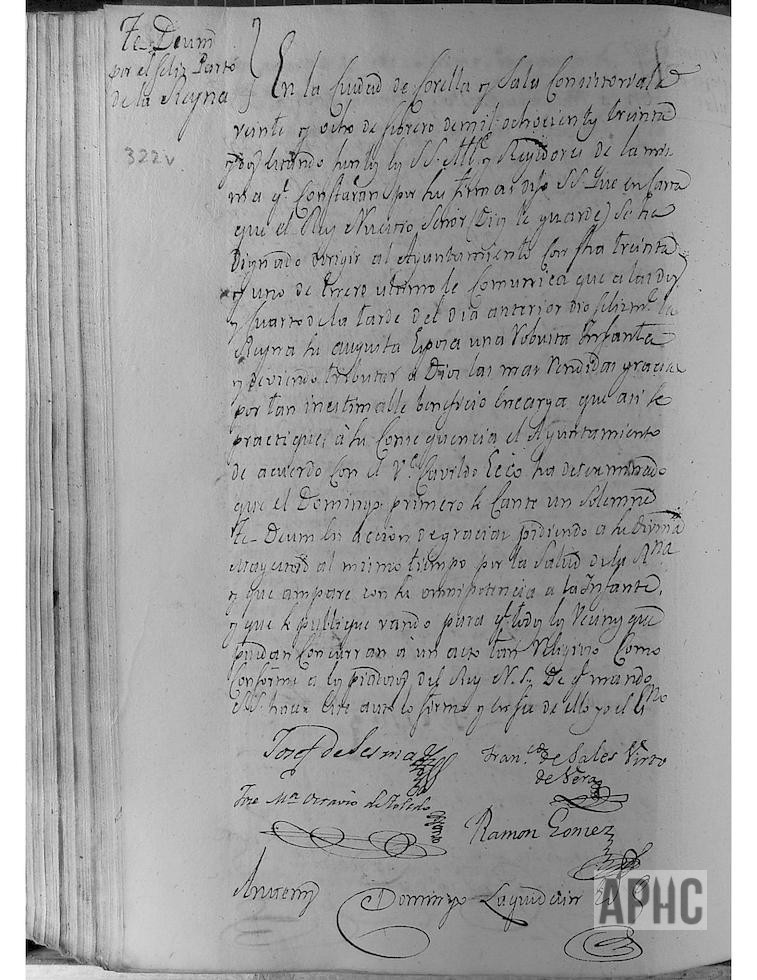 Te Deum
por el feliz Parto
de la Reyna
322v
En la Ciudad de Corella y Sala Consistorial a
veinte y ocho de febrero de mil ochocientos treinta
y dos estando juntos los SS. Alce. y Regidores de la mis-
ma qe. constaran por sus firmas dijo SS. Que en Carta
que el Rey Nuestro Señor (Dios le guarde) se ha
Dignado dirigir al Ayuntamiento con fha treinta
y uno de Enero ultimo le Comunica que a las dos
y quarto de la tarde del dia anterior dio felizmte. la
Reyna su augusta Esposa una Robusta Infanta
y deviendo tributar a Dios las mas rendidas gracias
por tan inestimable beneficio encarga que asi se
practique; à su Consequencia el Ayuntamiento
de acuerdo con el Ve. Cavildo Ecco. ha determinado
que el Domingo primero se Cante un Solemne
Te-Deum en accion de gracias pidiendo a su Divina
Magestad al mismo tiempo por la Salud de la Rna
y que ampare con su omnipotencia a la Infanta,
y que se publique vando para qe. todos los Vecinos que
puedan Concurran à un acto tan Religioso Como
Conforme a los piadosos del Rey N. S. De qe. mando
SS. hacer este auto lo firmo y en fee de ello yo el Esno
Josef de Sesma
Franco. de Sales Virto
de Vera
Jose Ma. Octavio de Toledo
Ramon Gomez
Antemi
Domingo Laquidain
APHC